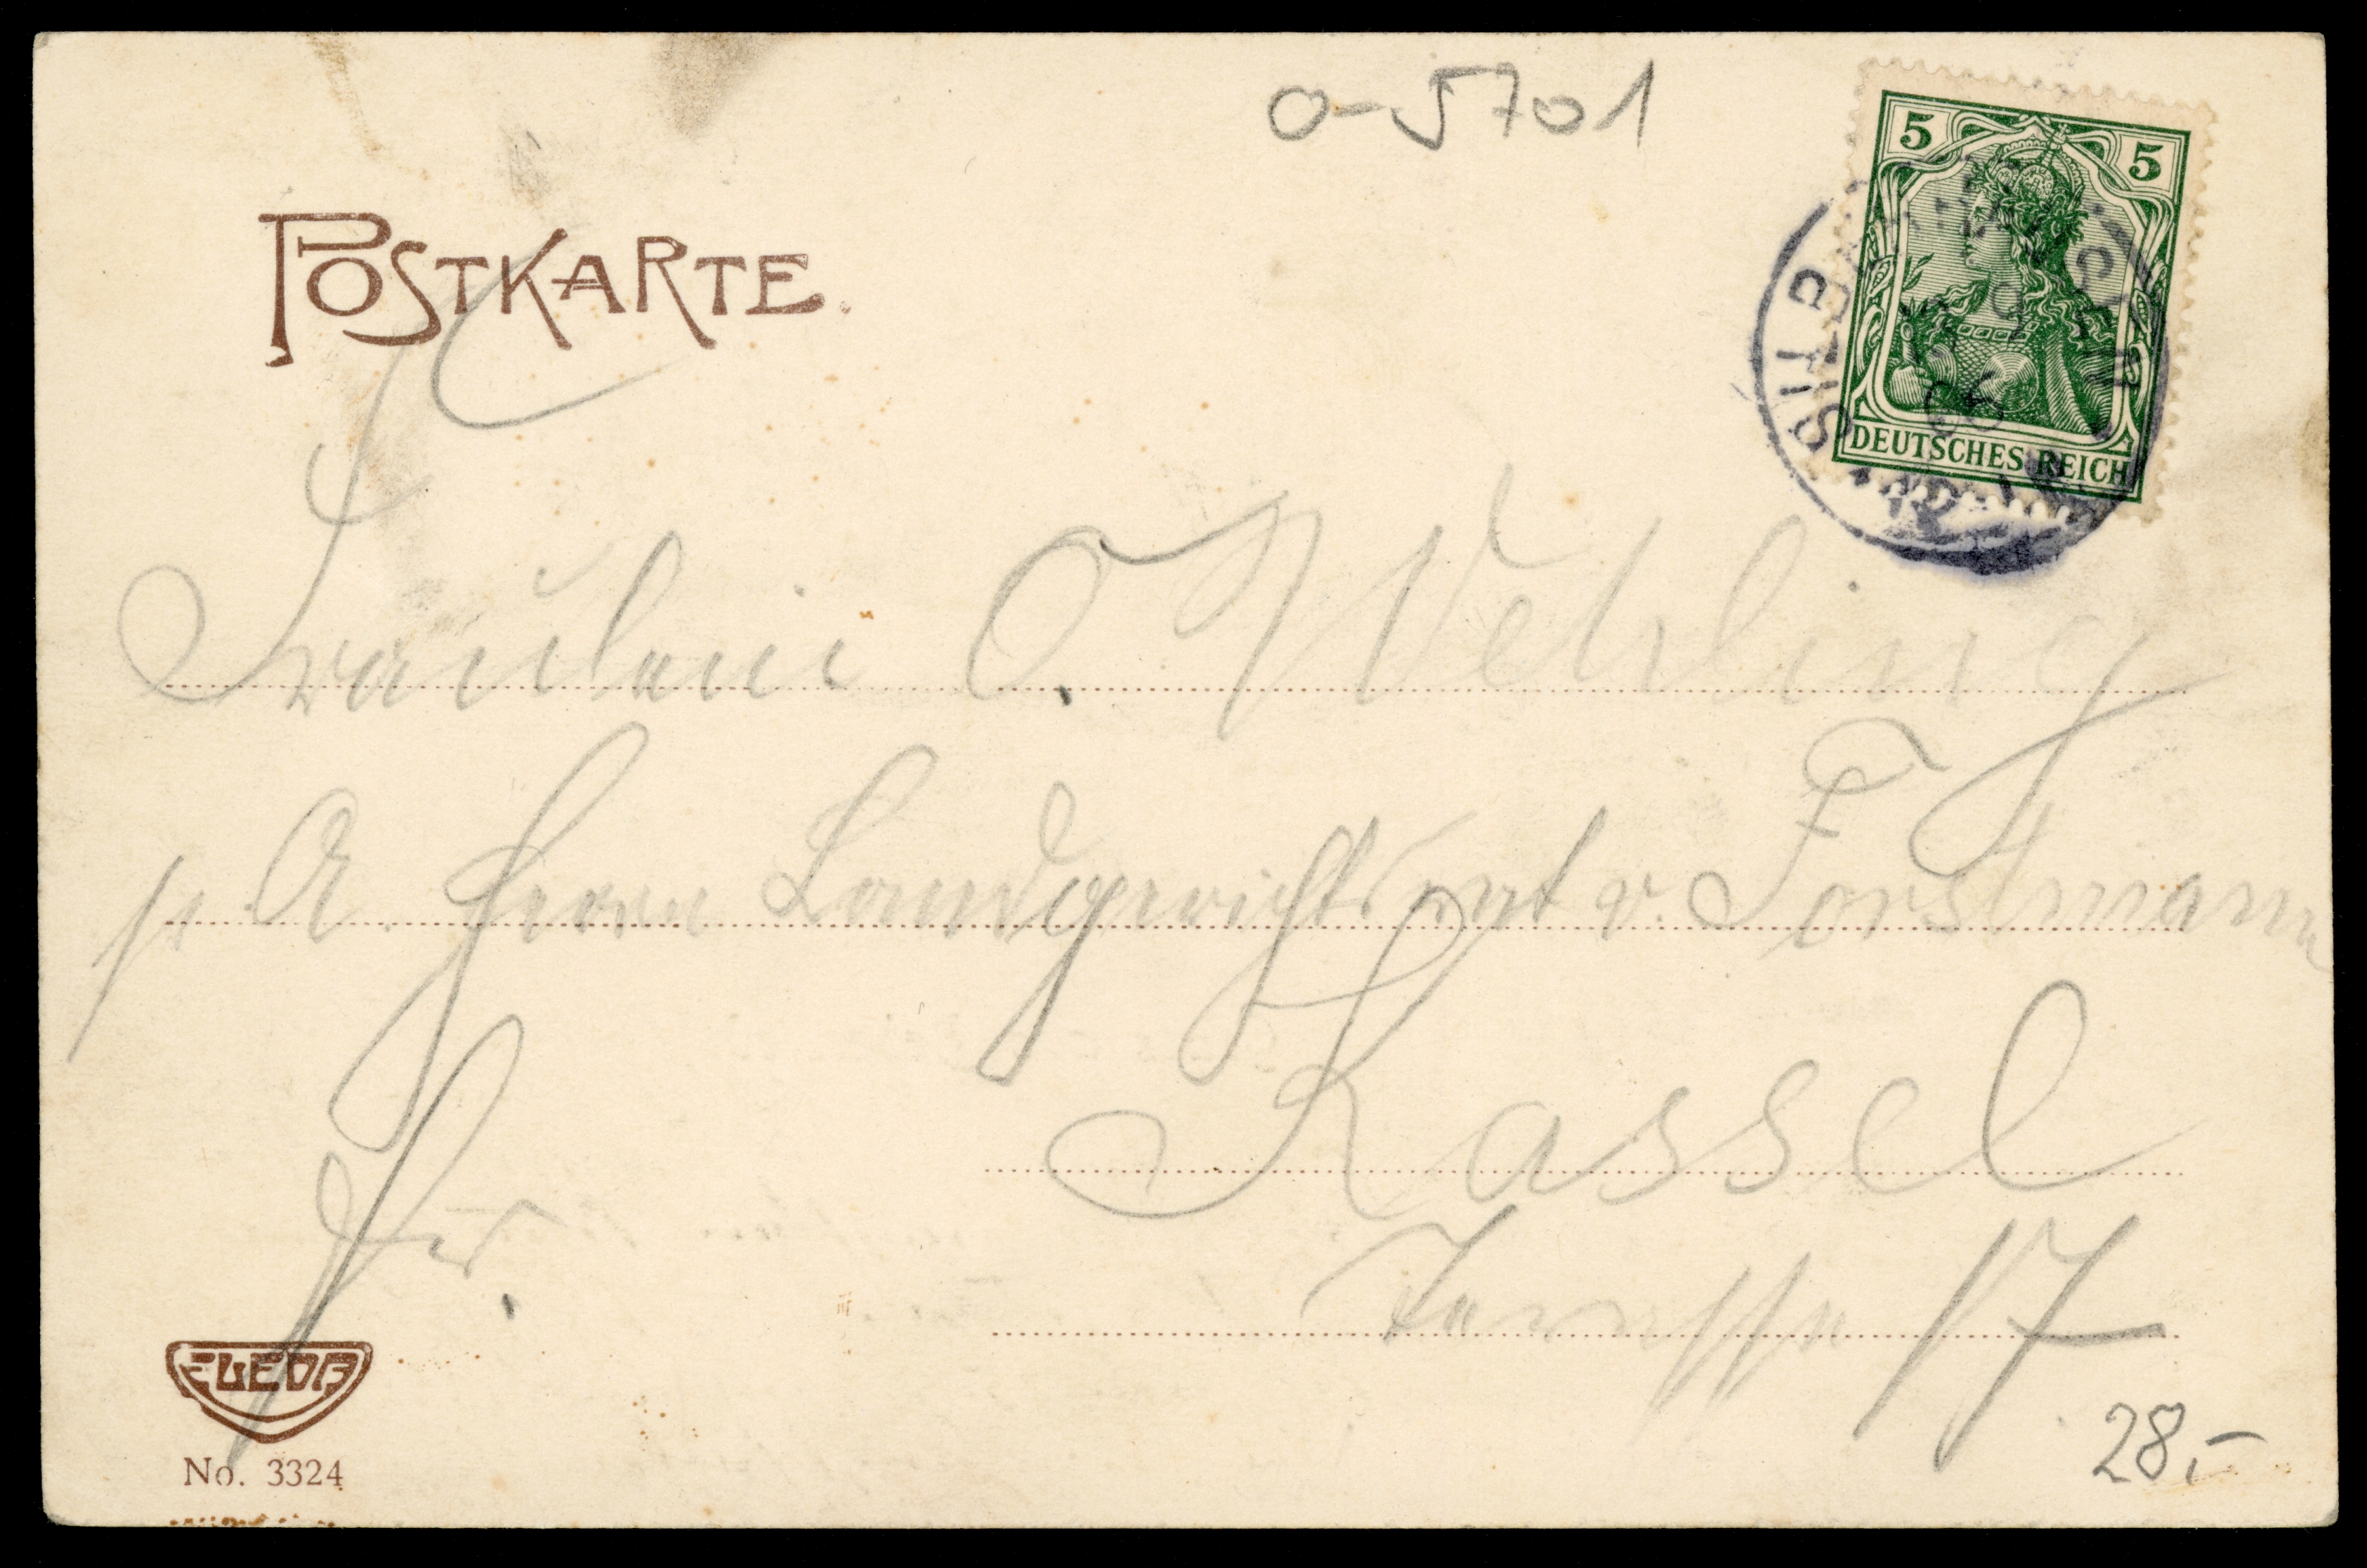 o-5701
5 5
POSTKARTE.
DEUTSCHES REICH
Fräulein O. Wehling
p. A. Herrn Landgerichtsrat v. Forstmann
Kassel
17
EWEDA
No. 3324
28,-